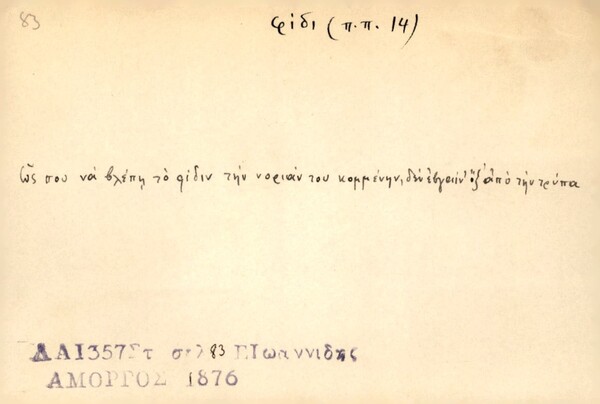 83
φίδι (π.π. 14)
Ὥς σου νὰ βλέπῃ τὸ φίδιν τὴν νοριάν του κομμένην, δὲν ἐβγαίνει ὄξ' ἀπὸ τὴν τρύπα
ΛΑΙ357Στ σελ 83 ΕΙωαννιδης
ΑΜΟΡΓΟΣ 1876